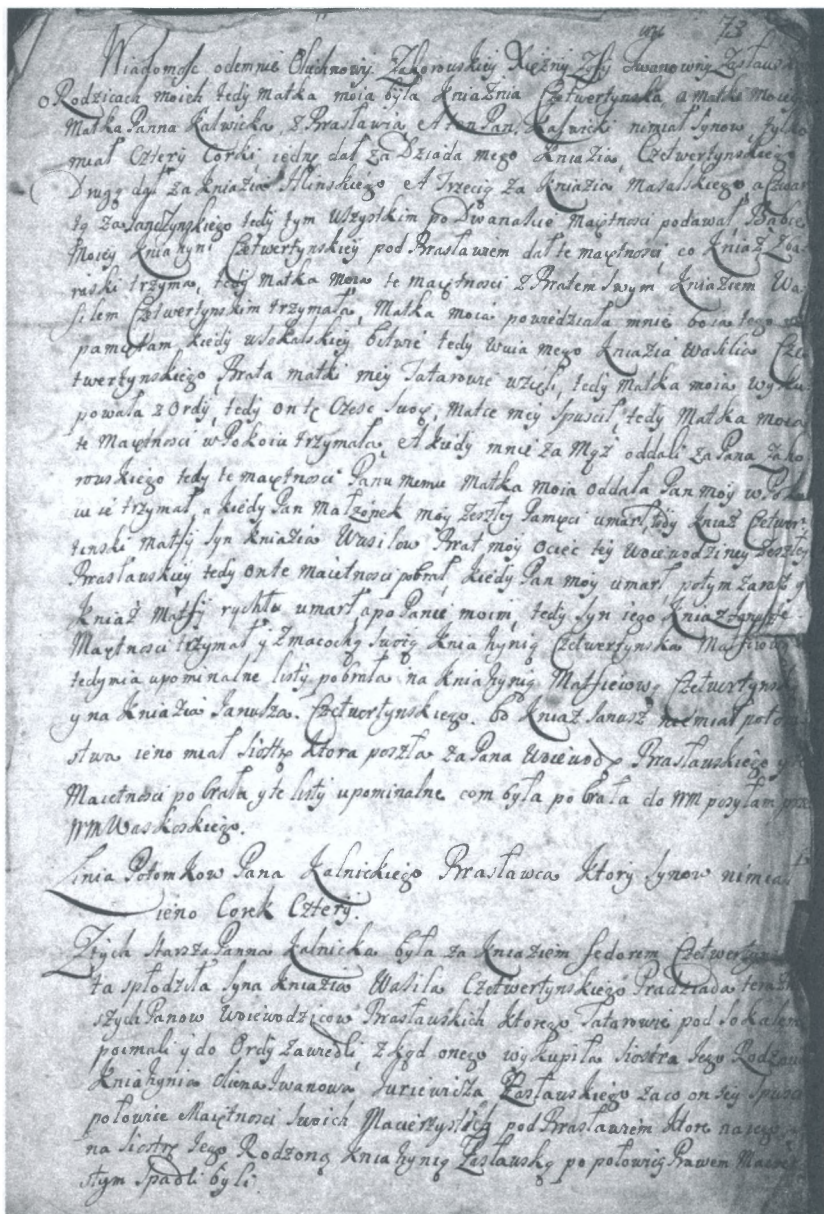 73
Wiadomość odemnie Oluchnowy Zahorouskiey Xiężny Zofij Iwanowny Zasławski
o Rodzicach moich tedy Matka moia była Kniaźnia Czetwertynska, a matki moiey
Matka Panna Kalnicka, z Brasławia, A ten Pan, Kalnicki nimiał Synow, tylko
miał Cztery Corki, iednę dał za Dziada mego Kniazia, Czetwertynskiego
Drugą dał za Kniazia Hlinskiego, A Trzecią za Kniazia Masalskiego, a Czwar
tą za tedy tym wszystkim po Dwanascie maiętnosci podawał, Babce
Moiey Kniahyni Czetwertynskiey pod Brasławem dał te maiętnosci, co Kniaź Zba
raski trzyma, tedy matka moia te maiętnosci z Bratem Swym Kniaziem Wa
silem Czetwertynskim trzymała, Matka moia powiedziała mnie bo ia tego nie
pamiętam kiedy w Sokalskiey bitwie tedy wuia mego Kniazia Wasilia Cze
twertynskiego Brata matki mey Tatarowie wzieli, tedy matka moia wyku
powała z Ordy, tedy on tę Część Swoię, Matce mey Spuscił tedy Matka moia
te Maiętnosci w Pokoiu trzymała, A kiedy mnie za Mąż oddali za Pana Zaho
rouskiego tedy te maiętnosci Panu memu Matka moia oddała Pan moy w Poko
iu ie trzymał, a kiedy Pan małżonek moy Zeszłey Pamięci umarł, tedy Kniaź Czetwer
tenski Matfij Syn Kniazia Wasilow Brat moy ociec tey Woiewodziney Zeszłey
Brasławskiey tedy on te maietnosci pobrał, kiedy Pan moy umarł, potym zaraz y
Kniaź Matfij rychło umarł a po Panie moim, tedy Syn iego Kniaź Janusz te
Maiętnosci trzymał y z macochą Swoią Kniahynią Czetwertynska Matfiiową
tedym ia upominalne listy pobrała na Kniahynię Matfieiowę Czetwertynską
y na Kniazia Janusza. Czetwertynskiego. bo Kniaź Janusz niemiał potom
stwa ieno miał Siostrę ktora poszła za Pana Woiewodę Brasławskiego y te
Maietnosci pobrała y te listy upominalne com była pobrała do WM posyłam prze
WM Waskoskiego.
Linia Potomkow Pana Kalnickiego Brasławca ktory Synow nimiał
ieno Corek Cztery.
Z tych starsza Panna Kalnicka była za Kniaziem Fedorem Czetwertyn
ta spłodziła Syna Kniazia Wasila Czetwertynskiego Pradziada teraźn
szych Panow Woiewodzicow Brasławskich ktorego Tatarowie pod Sokalem
poimali y do Ordy zawiedli, z kąd onego wykupiła Siostra Jego Rodzona
Kniahynia Olena Iwanowa Juriewicza Zasławskiego zaco on iey Spuscił
połowie Maiętnosci Swoich Macierzystych pod Brasławiem ktore na iego y
na Siostrę Jego Rodzoną Kniahynię Zasławską po połowie Prawem Macierzy
stym Spadli byli.